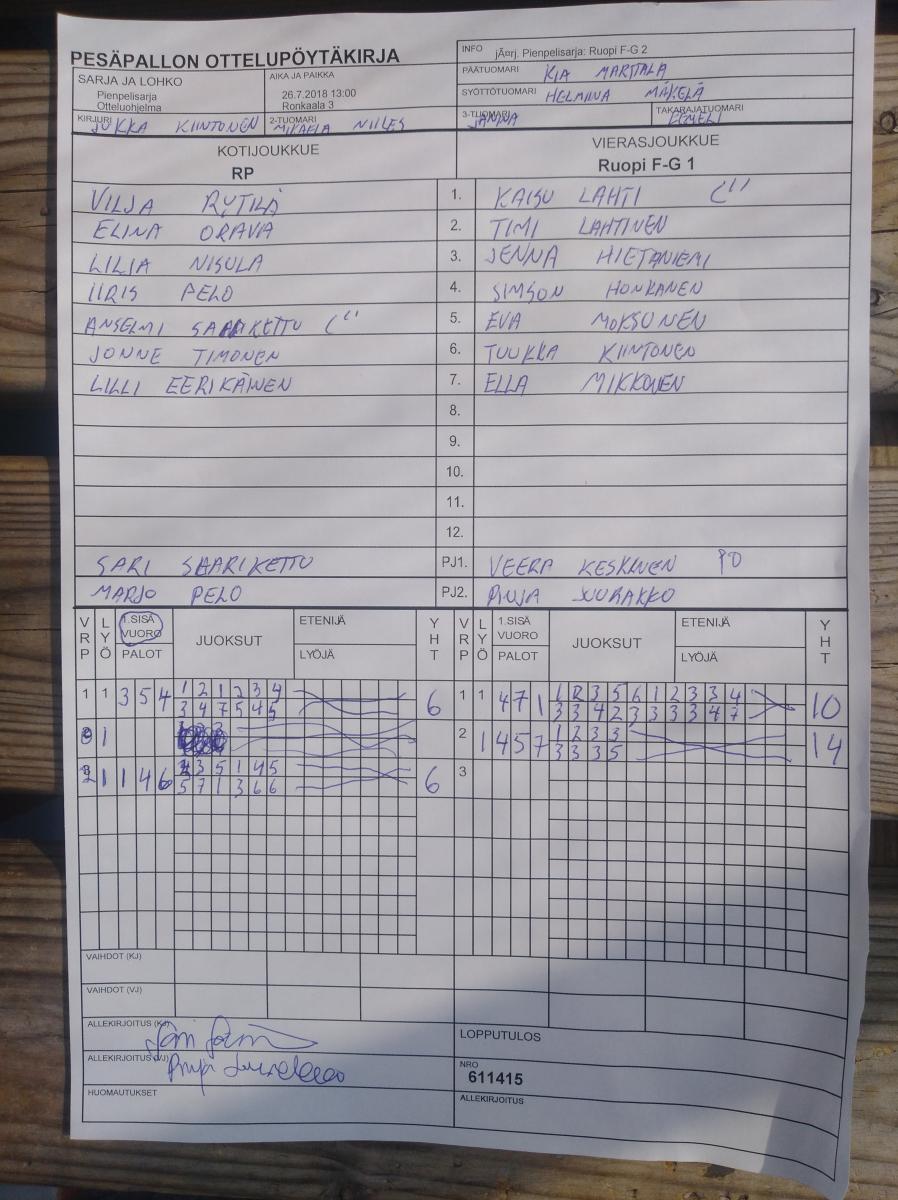 PESÄPALLON OTTELUPÖYTÄKIRJA
INFO jÃ¤rj. Pienpelisarja: Ruopi F-G 2
PÄÄTUOMARI KIA MARTTALA
SYÖTTÖTUOMARI HELMIINA MÄKELÄ
3-TUOMARI JANNA TAKARAJATUOMARI EEMELI
SARJA JA LOHKO
Pienpelisarja
Otteluohjelma
AIKA JA PAIKKA
26.7.2018 13:00
Ronkaala 3
KIRJURI JUKKA KIINTONEN 2-TUOMARI MIKAELA NIILES
KOTIJOUKKUE VIERASJOUKKUE
RP Ruopi F-G 1
VILJA RYTILÄ 1. KAISU LAHTI
ELINA ORAVA 2. TIMI LAHTINEN
LILJA NISULA 3. JENNA HIETANIEMI
IIRIS PELO 4. SIMSON HONKANEN
ANSELMI SAARIKETTU 5. EVA MOKSUNEN
JONNE TIMONEN 6. TUUKKA KIINTONEN
LILLI EERIKÄINEN 7. ELLA MIKKONEN
8.
9.
10.
11.
12.
SARI SAARIKETTU PJ1. VEERA KESKINEN PO
MARJO PELO PJ2. PIUJA JUURAKKO
VRP LYÖ 1.SISÄ VUORO PALOT JUOKSUT ETENIJÄ LYÖJÄ YHT VRP LYÖ 1.SISÄ VUORO PALOT JUOKSUT ETENIJÄ LYÖJÄ YHT
1 1 3 5 4 1 2 1 2 3 4 6 1 1 4 7 1 1 2 3 5 6 1 2 3 3 4 10
3 4 7 5 4 5 3 3 4 2 3 3 3 3 4 7
1 2 1 4 5 7 1 2 3 3 14
3 3 3 5
2 1 1 4 6 2 3 5 1 4 5 6 3
5 7 1 3 6 6
VAIHDOT (KJ)
VAIHDOT (VJ)
ALLEKIRJOITUS (KJ)
LOPPUTULOS
ALLEKIRJOITUS (VJ)
NRO
611415
HUOMAUTUKSET
ALLEKIRJOITUS